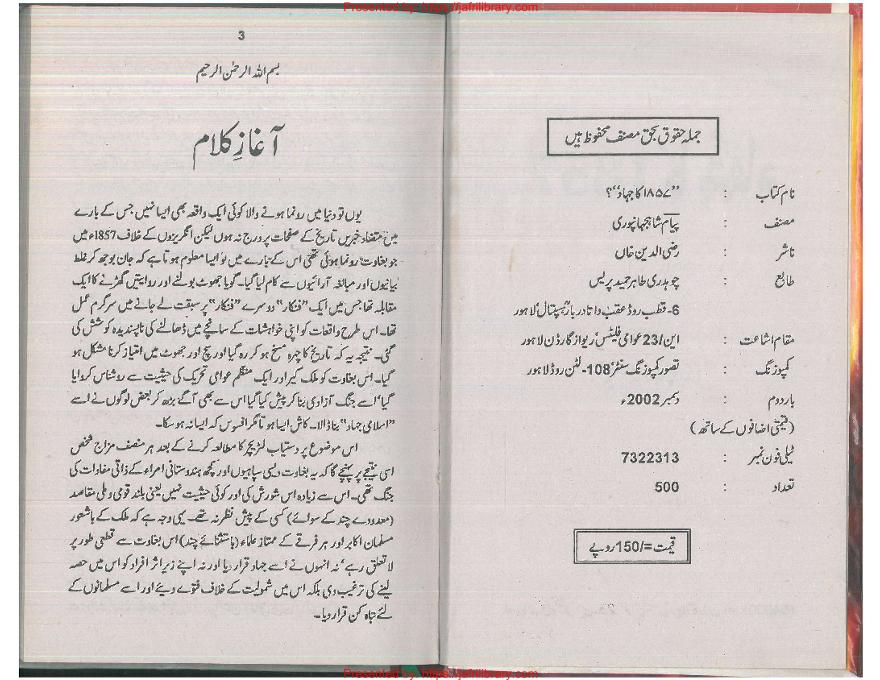 Presented by: https://jafrilibrary.com
جملہ حقوق بحق مصنف محفوظ ہیں
نام کتاب : ”۱۸۵۷ کا جہاد“؟
مصنف : پیام شاہجہانپوری
ناشر : رضی الدین خاں
طابع : چوہدری طاہر حمید پریس
6- قطب روڈ عقب داتا دربار ہسپتال‘ لاہور
مقام اشاعت : این/23 عوامی فلیٹس‘ ریواز گارڈن لاہور
کمپوزنگ : تصور کمپوزنگ سنٹر‘ 108- لٹن روڈ لاہور
بار دوم : دسمبر 2002ء
(قیمتی اضافوں کے ساتھ)
ٹیلی فون نمبر : 7322313
تعداد : 500
قیمت =/150 روپے
3
بسم اللہ الرحمٰن الرحیم
آغازِ کلام
یوں تو دنیا میں رونما ہونے والا کوئی ایک واقعہ بھی ایسا نہیں جس کے بارے
میں متضاد خبریں تاریخ کے صفحات پر درج نہ ہوں لیکن انگریزوں کے خلاف 1857ء میں
جو بغاوت رونما ہوئی تھی اس کے بارے میں تو ایسا معلوم ہوتا ہے کہ جان بوجھ کر غلط
بیانیوں اور مبالغہ آرائیوں سے کام لیا گیا۔ گویا جھوٹ بولنے اور روایتیں گھڑنے کا ایک
مقابلہ تھا جس میں ایک ”فنکار“ دوسرے ”فنکار“ پر سبقت لے جانے میں سرگرم عمل
تھا۔ اس طرح واقعات کو اپنی خواہشات کے سانچے میں ڈھالنے کی ناپسندیدہ کوشش کی
گئی۔ نتیجہ یہ کہ تاریخ کا چہرہ مسخ ہو کر رہ گیا اور سچ اور جھوٹ میں امتیاز کرنا مشکل ہو
گیا۔ اس بغاوت کو ملک گیر اور ایک منظم عوامی تحریک کی حیثیت سے روشناس کروایا
گیا‘ اسے جنگ آزادی بنا کر پیش کیا گیا اس سے بھی آگے بڑھ کر بعض لوگوں نے اسے
”اسلامی جہاد“ بنا ڈالا۔ کاش ایسا ہوتا مگر افسوس کہ ایسا نہ ہو سکا۔
اس موضوع پر دستیاب لٹریچر کا مطالعہ کرنے کے بعد ہر منصف مزاج شخص
اسی نتیجے پر پہنچے گا کہ یہ بغاوت دیسی سپاہیوں اور کچھ ہندوستانی امراء کے ذاتی مفادات کی
جنگ تھی۔ اس سے زیادہ اس شورش کی اور کوئی حیثیت نہیں یعنی بلند قومی و ملی مقاصد
(معدودے چند کے سوائے) کسی کے پیش نظر نہ تھے۔ یہی وجہ ہے کہ ملک کے باشعور
مسلمان اکابر اور ہر فرقے کے ممتاز علماء (باستثنائے چند) اس بغاوت سے قطعی طور پر
لاتعلق رہے‘ نہ انہوں نے اسے جہاد قرار دیا اور نہ اپنے زیر اثر افراد کو اس میں حصہ
لینے کی ترغیب دی بلکہ اس میں شمولیت کے خلاف فتوے دیئے اور اسے مسلمانوں کے
لئے تباہ کن قرار دیا۔
Presented by: https://jafrilibrary.com